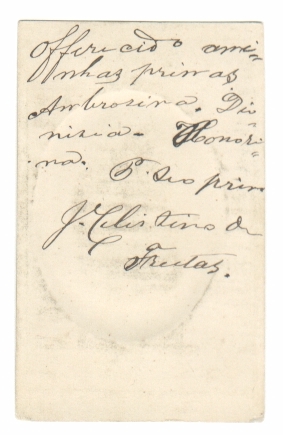 Offerecido ami-
nhas primas
Ambrosina. Dio-
nizia. Honori-
na.
P. seo primo
J. Celistino de
Freitas.